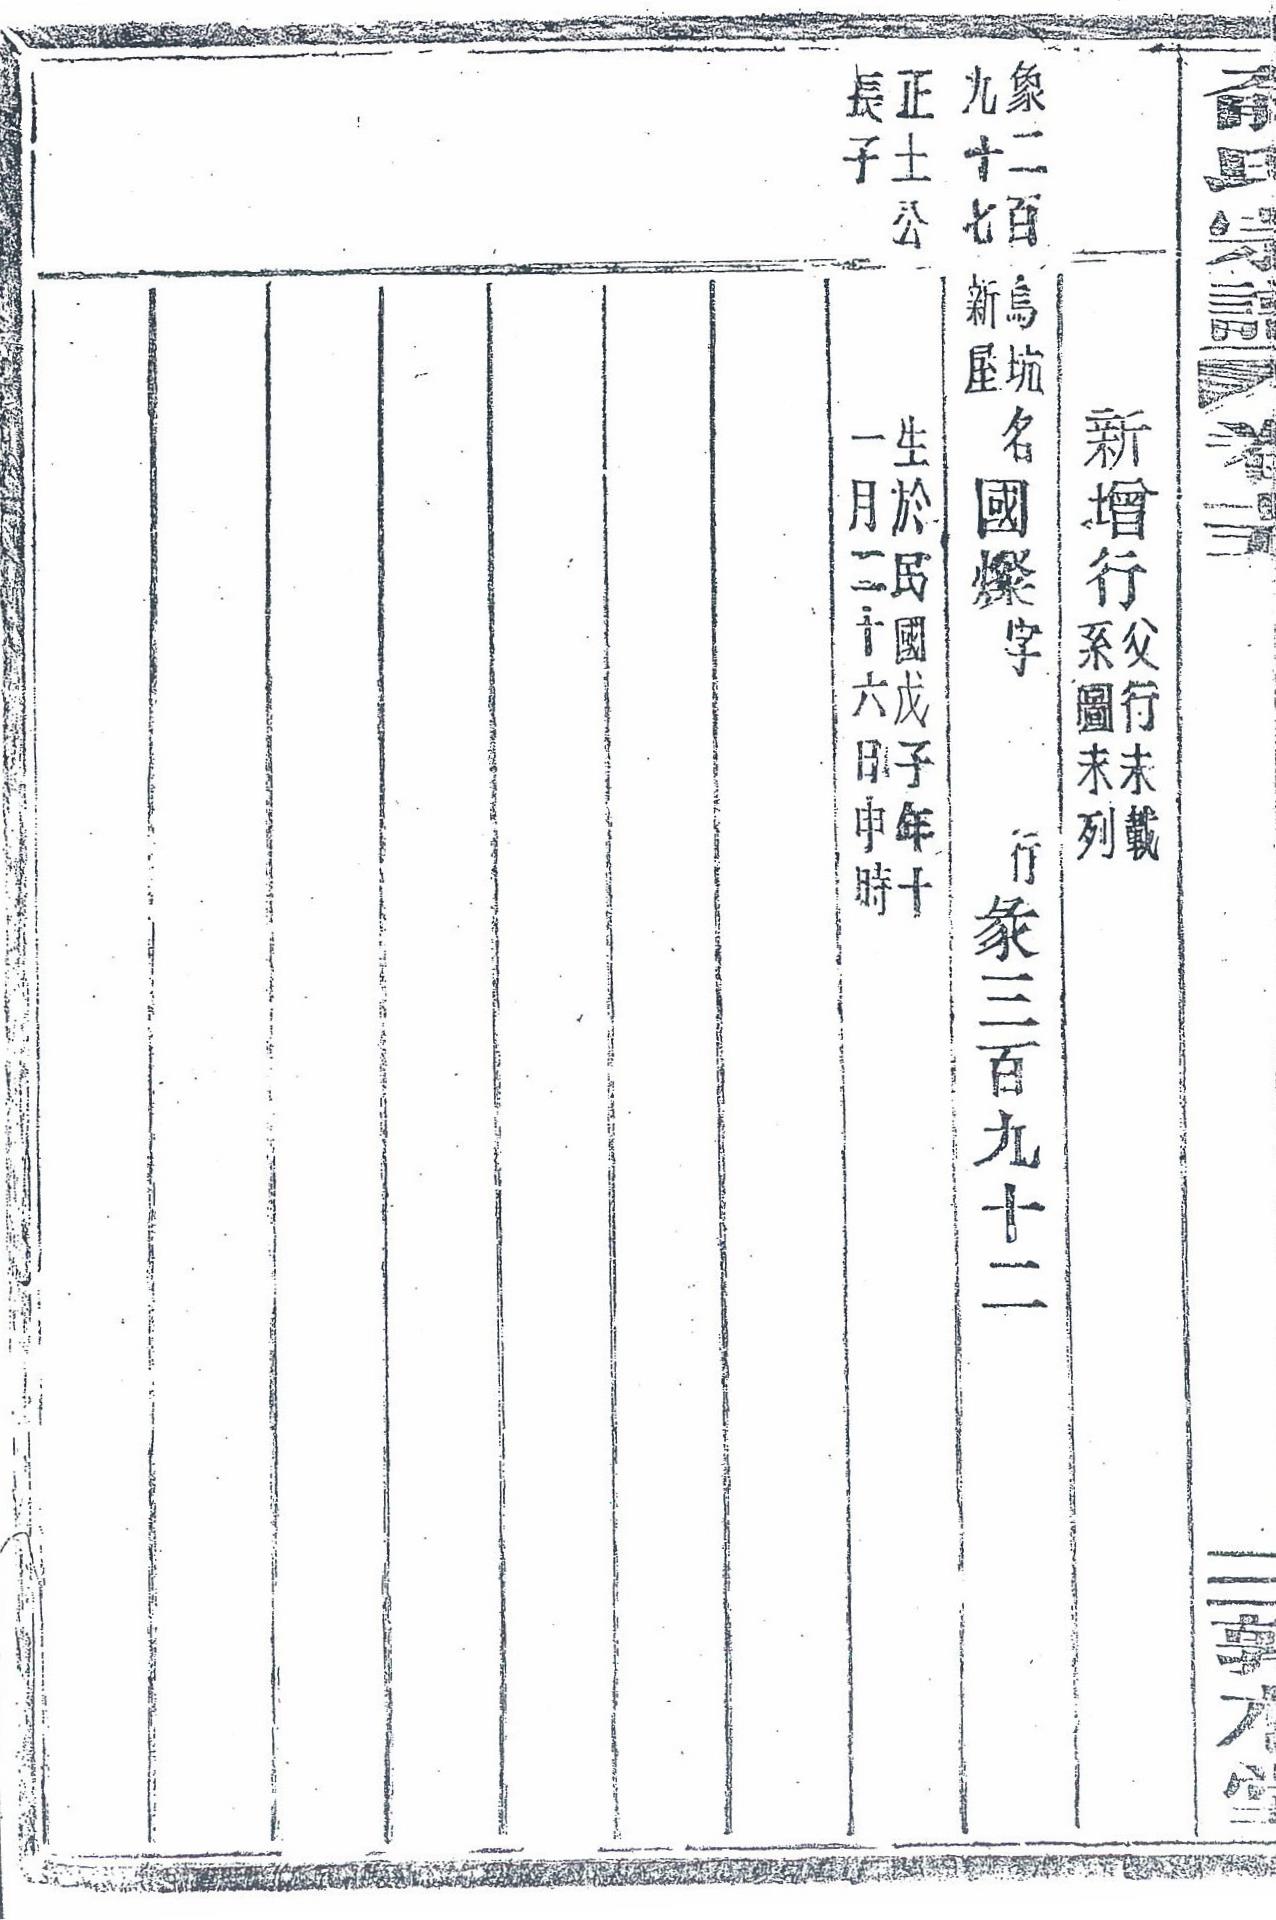 氏宗譜 卷三
三
堂
新增行
父行未載
系圖未列
象二百
九十七
烏坑
新屋
名國燦字 行彖三百九十二
正士公
長子
生於民國戊子年十
一月二十六日申時